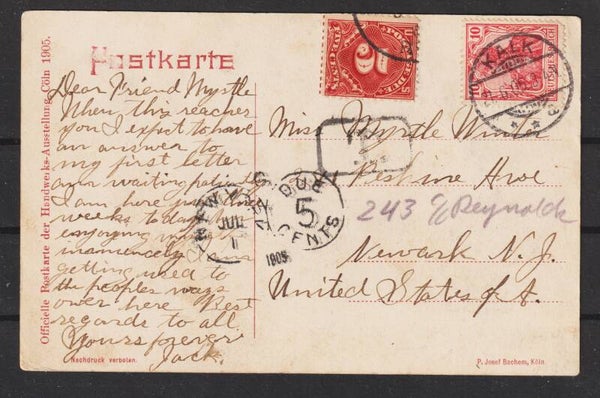 Postkarte
Officielle Postkarte der Handwerks-Ausstellung Cöln 1905.
Dear Friend Myrtle
When this reaches
you I expect to have
an answer to
my first letter
am waiting patiently
I am here just two
weeks to day
enjoying myself
immensely. Am
getting used to
the peoples ways
over here Best
regards to all.
Yours forever
Jack.
Nachdruck verboten.
P. Josef Bachem, Köln.
Miss Myrtle
Erskine
243 c/o Reynolds
Newark N.J.
United States of A.
NEW
JUL
1
1905
DUE
5
CENTS
T
POSTAGE DUE
2
10
DEUTSCHES REICH
KALK